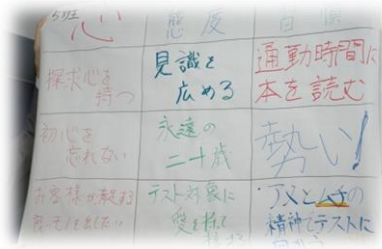 5班
心
態度
探求心を
持つ
見識を
広める
通勤時間に
本を読む
初心を
忘れない
永遠の
二十歳
勢い!
お客様が
テスト対象に
愛を持って
・アメとムチの
精神でテストに